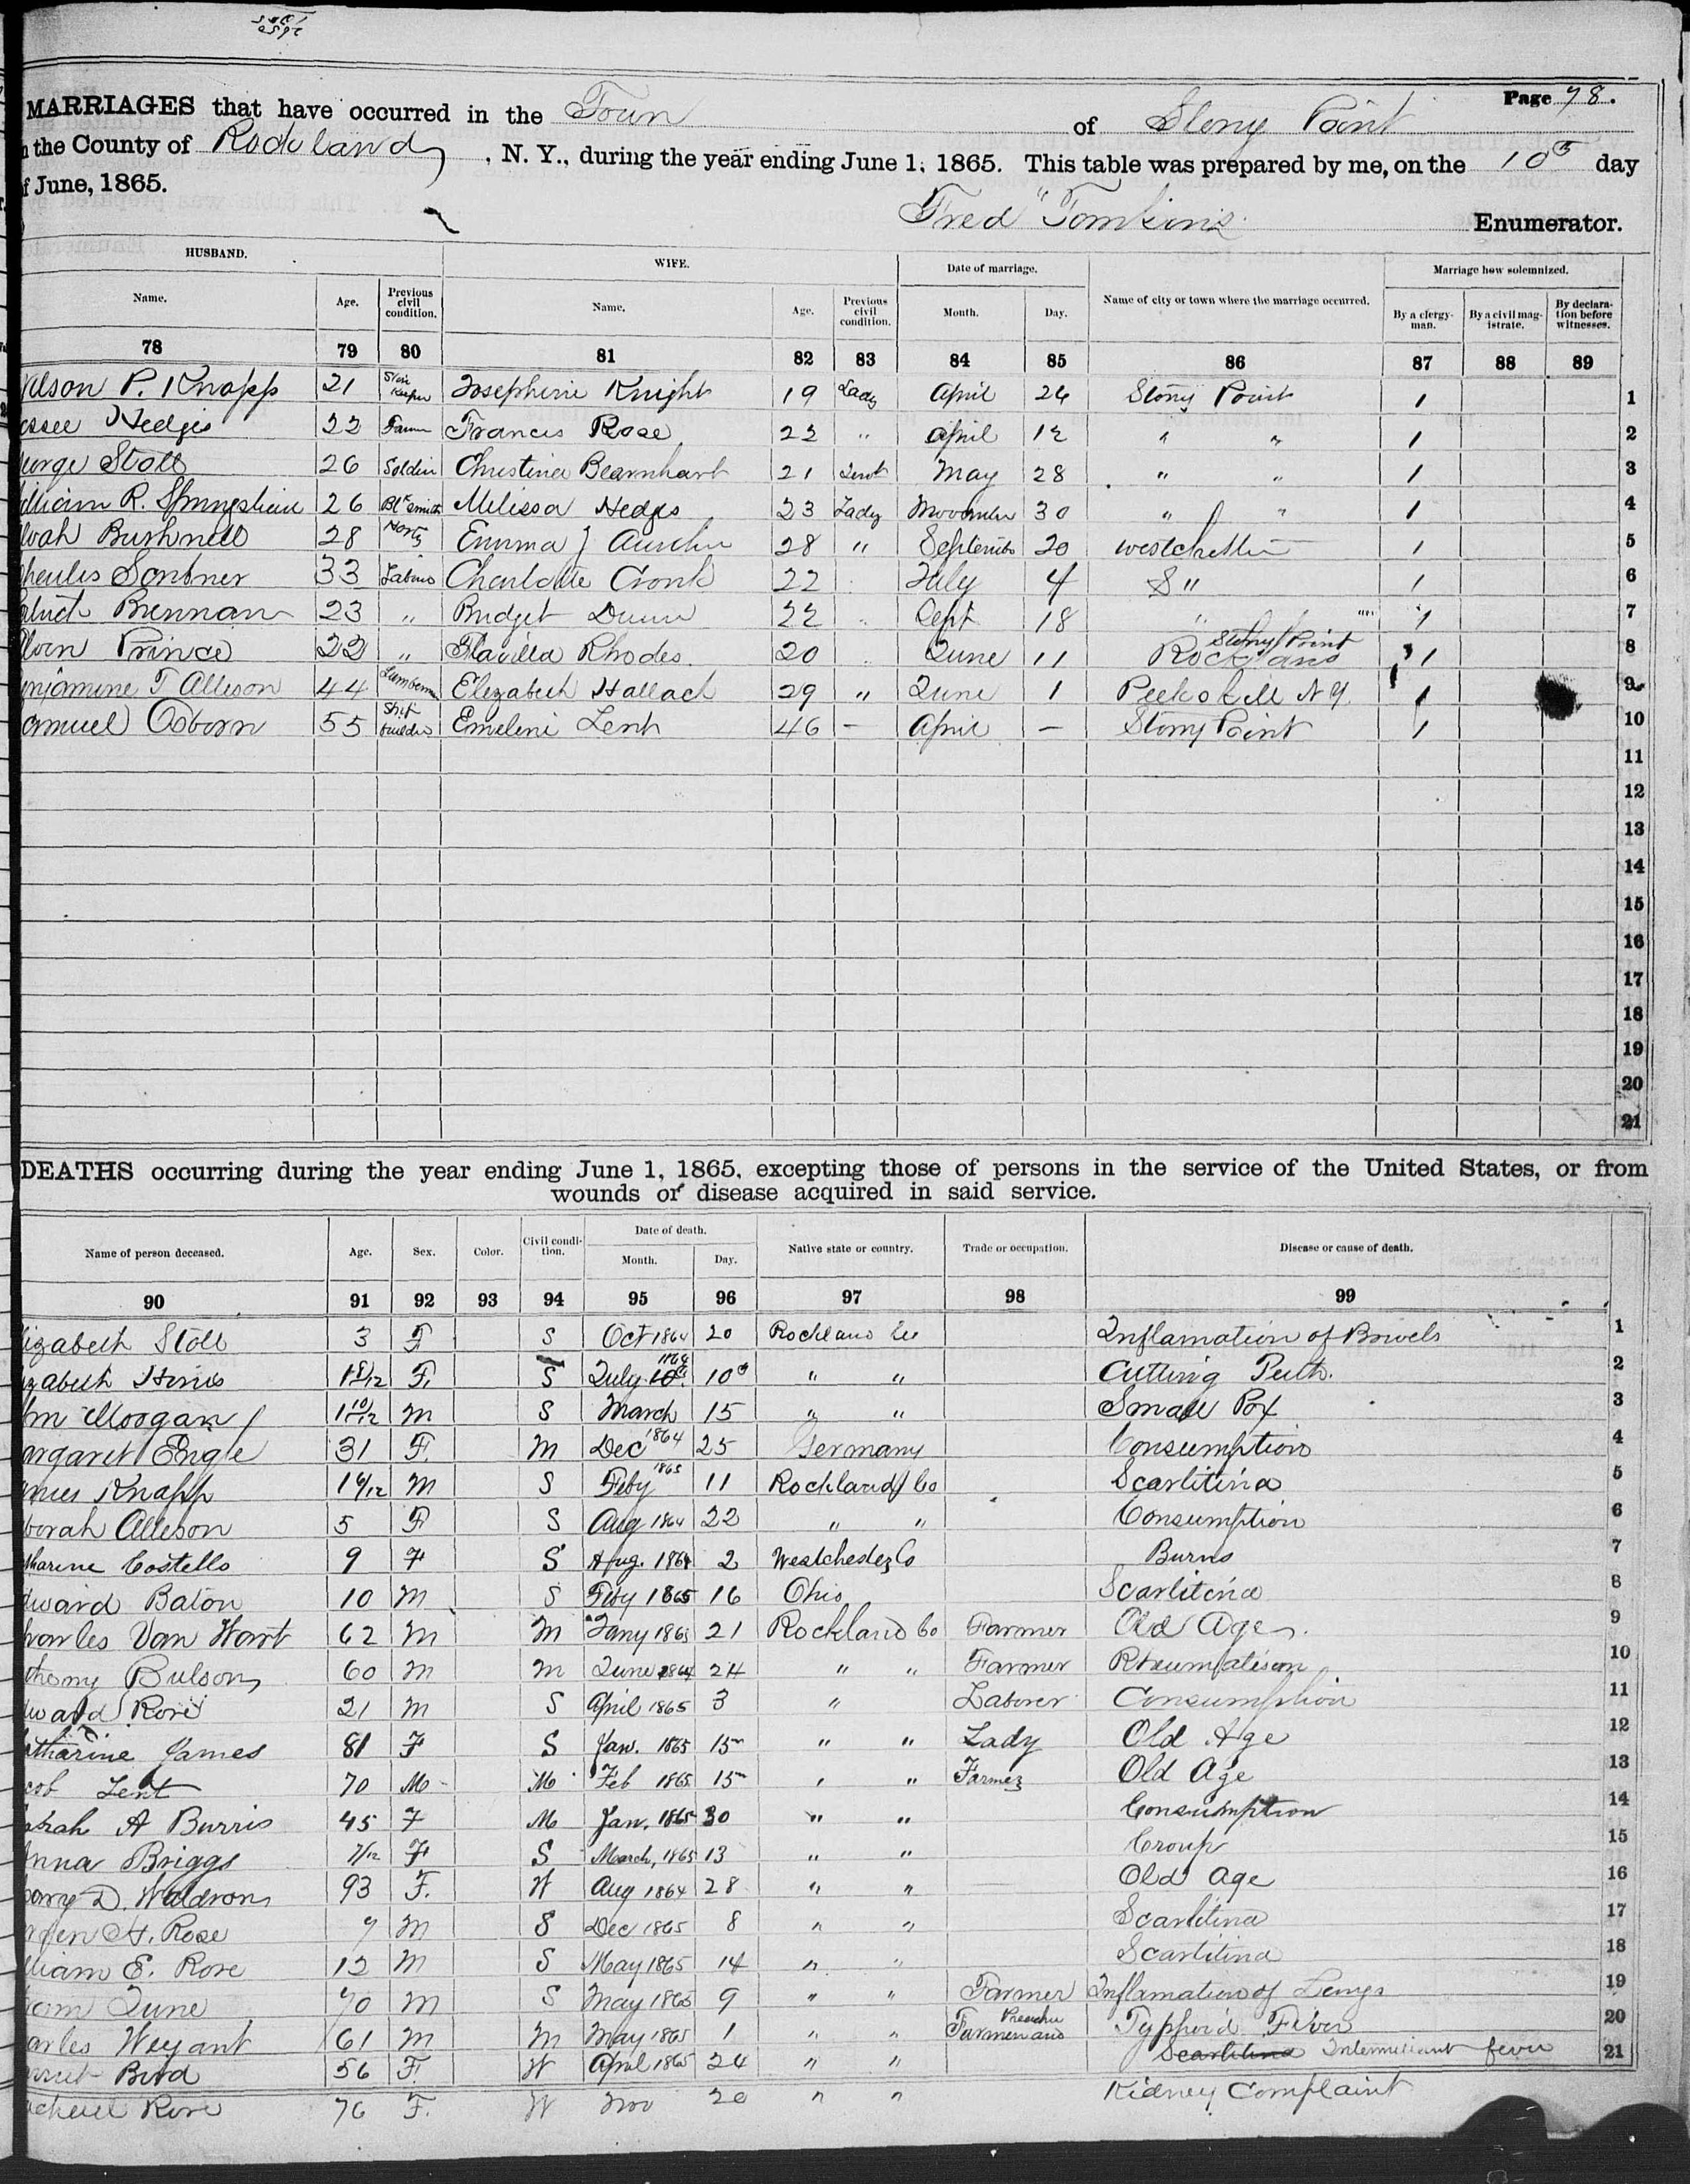 Page 78.
MARRIAGES that have occurred in the Town of Stony Point
the County of Rockland, N. Y., during the year ending June 1, 1865. This table was prepared by me, on the 10th day
f June, 1865.
Fred Tomkins Enumerator.
HUSBAND. WIFE. Date of marriage. Name of city or town where the marriage occurred. Marriage how solemnized.
Name. Age. Previous civil condition. Name. Age. Previous civil condition. Month. Day. By a clergyman. By a civil magistrate. By declaration before witnesses.
78 79 80 81 82 83 84 85 86 87 88 89
ilson P. Knapp 21 Store Keeper Josephine Knight 19 Lady April 26 Stony Point 1 1
essee Hedges 22 Farm Francis Rose 22 " April 12 " " 1 2
eorge Stoll 26 Soldier Christina Bearnhart 21 May 28 " " 1 3
illiam R. 26 Bk Smith Melissa Hedges 23 Lady November 30 " " 1 4
Bushnell 28 Emma J 28 " September 20 Westchester 1 5
Scribner 33 Labour Charlotte Cronk 22 July 4 S " 1 6
Brennan 23 " Bridget Dunn 22 Sept 18 " " 1 7
Prince 22 " Flavilla Rhodes 20 June 11 Rockland Stony Point 1 8
enjamine T Allison 44 Lumberman Elezabeth Hallach 29 " June 1 Peekskill N Y. 1 9
amuel Osborn 55 Ship builder Emeline Lent 46 – April – Stony Point 1 10
11
12
13
14
15
16
17
18
19
20
21
DEATHS occurring during the year ending June 1, 1865, excepting those of persons in the service of the United States, or from
wounds or disease acquired in said service.
Name of person deceased. Age. Sex. Color. Civil condition. Date of death. Month. Day. Native state or country. Trade or occupation. Disease or cause of death.
90 91 92 93 94 95 96 97 98 99
izabeth Stoll 3 F S Oct 1864 20 Rockland Co Inflamation of Bowels 1
zabeth F. S July 1864 10 " " Cutting Teeth. 2
Morgan 1 10/12 M S March 15 " " Small Pox 3
argaret Engle 31 F. M Dec 1864 25 Germany Consumption 4
ames Knapp M S Feby 1865 11 Rockland Co Scarlitina 5
borah Allison 5 F S Aug 1864 22 " " Consumption 6
tharine Costello 9 F S Aug. 1864 2 Westchester Co Burns 7
dward Baton 10 M S Feby 1865 16 Ohio Scarlitina 8
harles Van Wart 62 M M Jany 1865 21 Rockland Co Farmer Old Age. 9
nthony Bulson 60 M M June 1864 24 " " Farmer Rheumatism 10
dward Rose 21 M S April 1865 3 " Laborer Consumption 11
atharine James 81 F S Jan. 1865 15 " " Lady Old Age 12
cob Lent 70 M M Feb 1865 15 " " Farmer Old Age 13
arah A Burris 45 F M Jan. 1865 30 " " Consumption 14
nna Briggs 7/12 F S March, 1865 13 " " Croup 15
D. Waldron 93 F. W Aug 1864 28 " " Old Age 16
H. Rose 7 M S Dec 1865 8 " " Scarlitina 17
lliam E. Rose 12 M S May 1865 14 " " Scarlitina 18
June 70 M S May 1865 9 " " Farmer Inflamation of Lungs 19
arles Weyant 61 M M May 1865 1 " " Farmer and Preacher Typhoid Fever 20
Bird 56 F. W April 1865 24 " " Scarlitina Intermittant fever 21
achel Rose 76 F. W Nov 20 " " Kidney Complaint